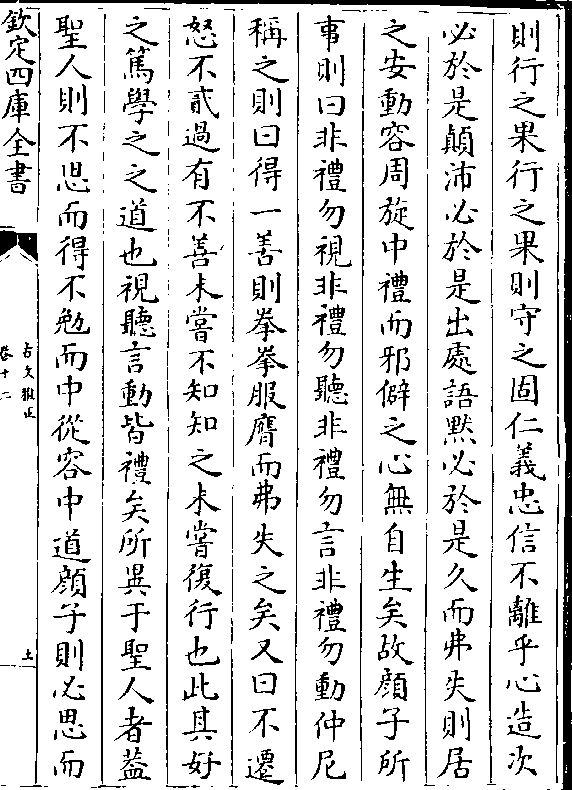 則行之果行之果則守之固仁義忠信不離乎心造次
必於是顛沛必於是出處語黙必於是久而弗失則居
之安動容周旋中禮而邪僻之心無自生矣故顔子所
事則曰非禮勿視非禮勿聽非禮勿言非禮勿動仲尼
稱之則曰得一善則拳拳服膺而弗失之矣又曰不遷
怒不貳過有不善未嘗不知知之未嘗復行也此其好
之篤學之之道也視聽言動皆禮矣所異于聖人者葢
聖人則不思而得不勉而中從容中道顔子則必思而
欽定四庫全書
古文雅正
卷十二